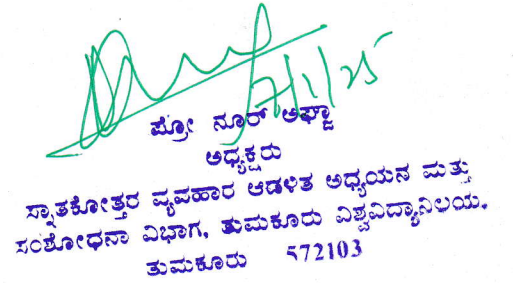 7/1/25
ಪ್ರೋ ನೂರ್ ಅಫ್ಜಾ
ಅಧ್ಯಕ್ಷರು
ಸ್ನಾತಕೋತ್ತರ ವ್ಯವಹಾರ ಆಡಳಿತ ಅಧ್ಯಯನ ಮತ್ತು
ಸಂಶೋಧನಾ ವಿಭಾಗ, ತುಮಕೂರು ವಿಶ್ವವಿದ್ಯಾನಿಲಯ.
ತುಮಕೂರು 572103